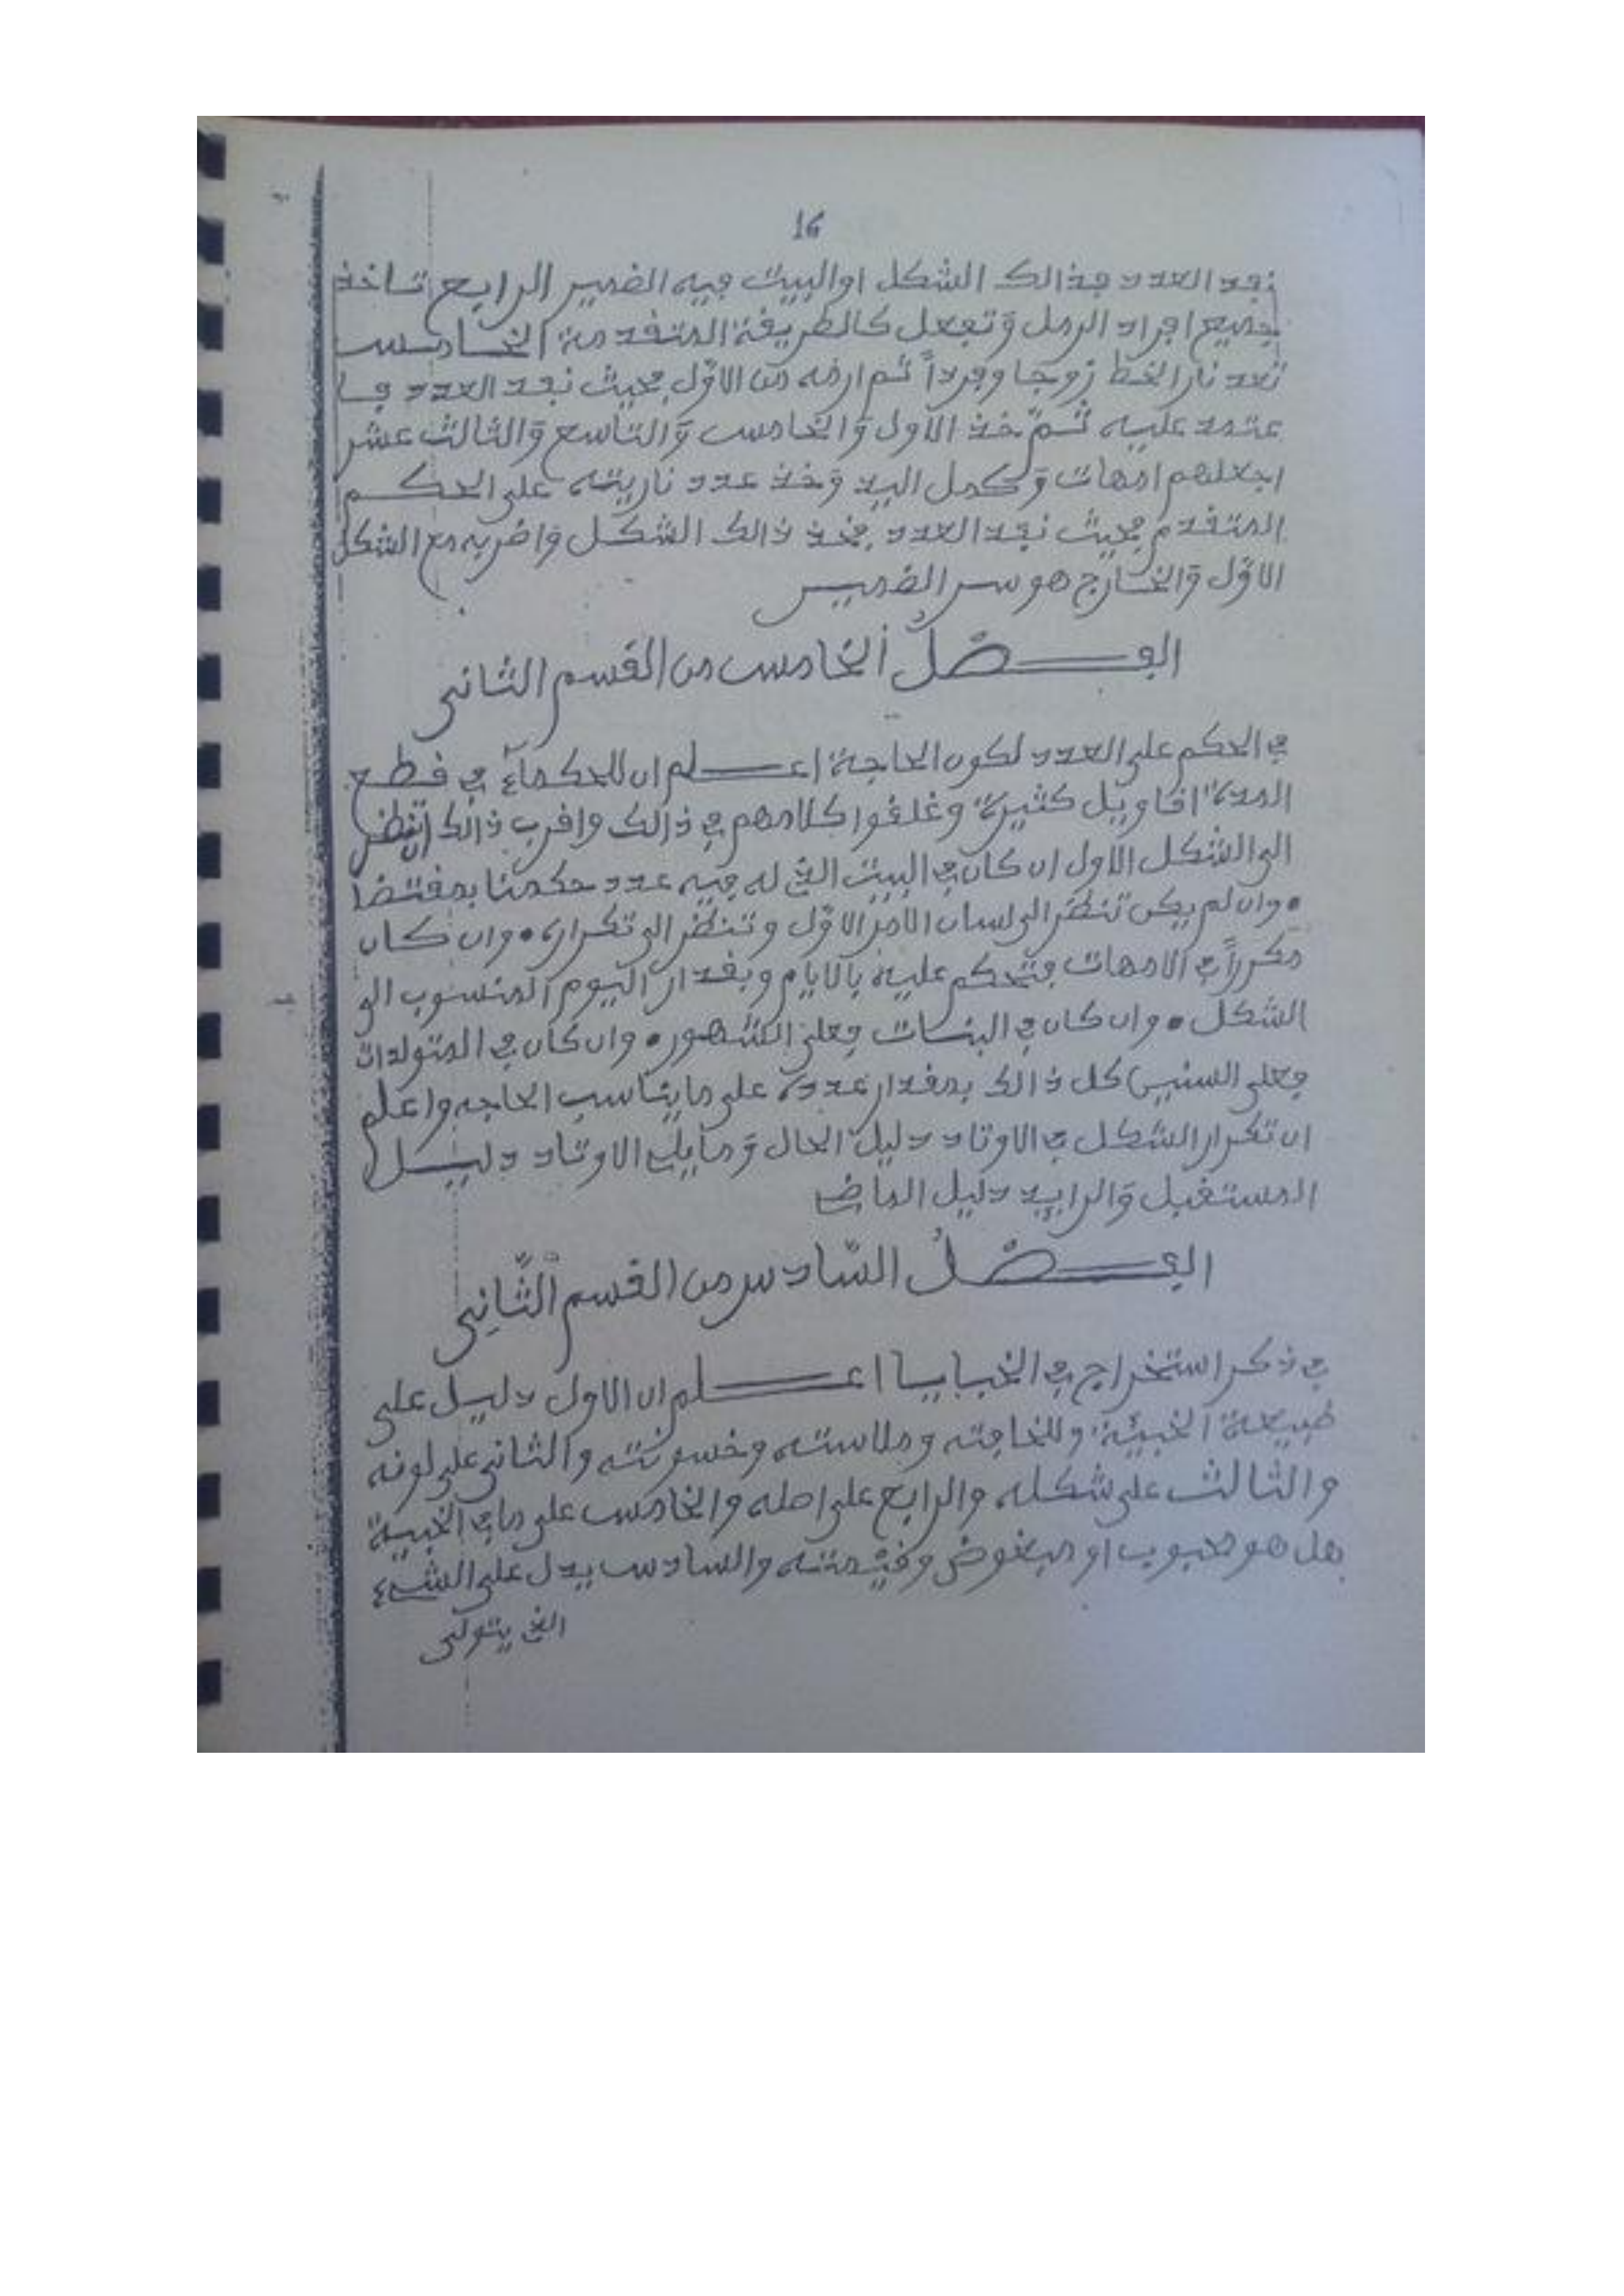 16
نفد العدد فذالك الشكل او البيت فيه الضمير الرابع تاخذ
جميع افراد الرمل وتفعل كالطريقة المتقدمة الخامس
تعد نار الخط زوجا وفرداً ثم ارمه من الاوّل بحيث نفد العدد فا
عتمد عليه ثمّ خذ الاول والخامس والتاسع والثالث عشر
اجعلهم امهات وكمل اليد وخذ عدد ناريته على الحكم
المتقدم بحيث نفد العدد فخذ ذالك الشكل واضربه مع الشكل
الاوّل والخارج هو سر الضمير
الفصلُ الخامس من القسم الثاني
في الحكم على العدد لكون الحاجة اعلم ان للحكمآء في قطع
المدة اقاويل كثيرة وغلقوا كلامهم في ذالك واقرب ذالك
الى الشكل الاول ان كان في البيت الذي له فيه عدد حكمنا بمقتضا
• وان لم يكن تنظر الى لسان الامر الاوّل وتنظر الى تكراره • وان كان
مكرراً في الامهات فتحكم عليه بالايام وبقدار اليوم المنسوب الى
الشكل • وان كان في البنات فعلى الشهور • وان كان في المتولدات
فعلى السنين كل ذالك بمقدار عدده على ما يناسب الحاجه واعلم
ان تكرار الشكل في الاوتاد دليل الحال وما يلي الاوتاد دليل
المستقبل والزايد دليل الماضي
الفصلُ السّادس من القسم الثّاني
في ذكر استخراج في الخبايا اعلم ان الاول دليل على
طبيعة الخبيئة وللخافته وملاسته وخسونته والثاني على لونه
والثالث على شكله والرابع على اصله والخامس على ما في الخبية
هل هو محبوب او مبغوض وقيمته والسادس يدل على الشيء
الذي يتولى